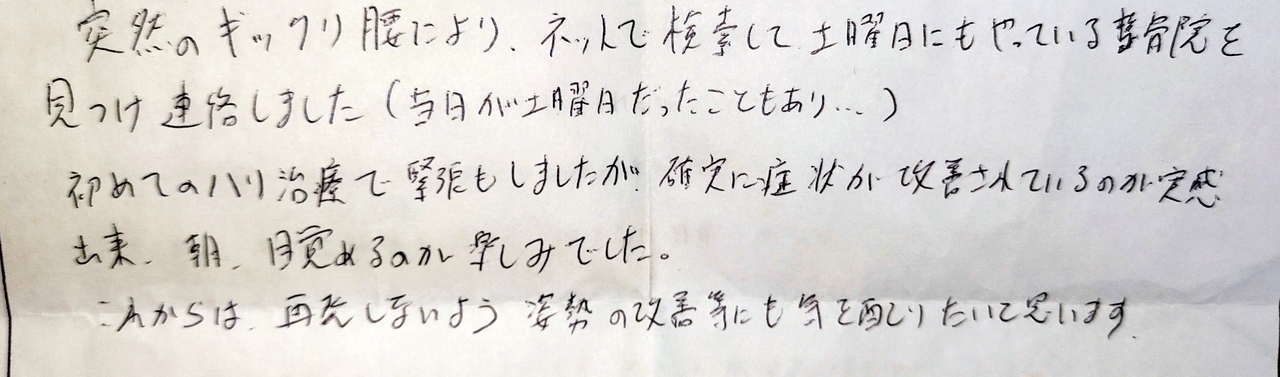 突然のギックリ腰により、ネットで検索して土曜日にもやっている整骨院を
見つけ連絡しました(当日が土曜日だったこともあり…)
初めてのハリ治療で緊張もしましたが、確実に症状が改善されているのが実感
出来、朝、目覚めるのが楽しみでした。
これからは、再発しないよう姿勢の改善等にも気を配りたいと思います.